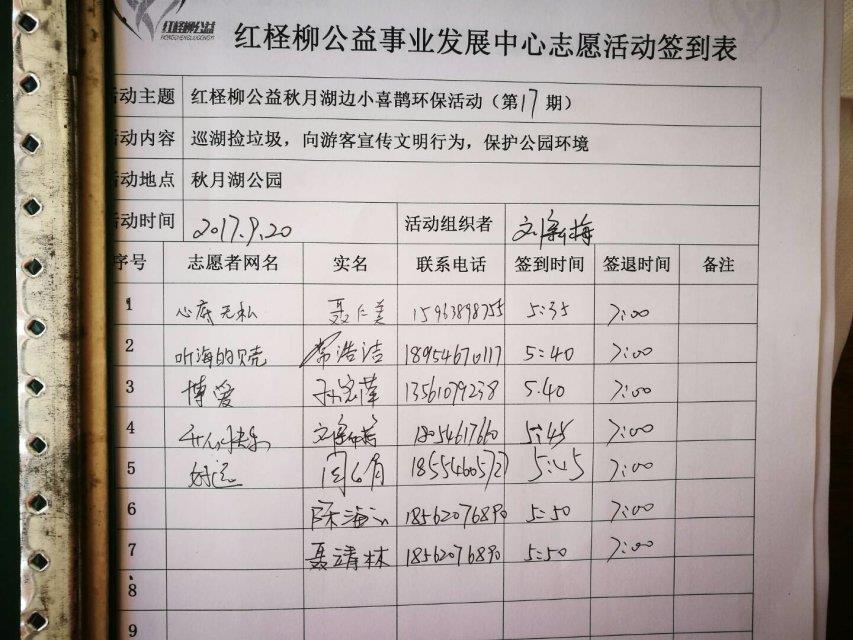 红柽柳公益
HONGCHENGLIUGONGYI
红柽柳公益事业发展中心志愿活动签到表
活动主题 红柽柳公益秋月湖边小喜鹊环保活动（第17期）
活动内容 巡湖捡垃圾，向游客宣传文明行为，保护公园环境
活动地点 秋月湖公园
活动时间 2017.9.20 活动组织者
序号 志愿者网名 实名 联系电话 签到时间 签退时间 备注
1 心底无私 聂仁美 15963898755 5:35 7:00
2 听海的贝壳 常浩洁 18954670117 5:40 7:00
3 博爱 13561079238 5.40 7:00
4 开心快乐 5:45 7:00
5 好运 18554605727 5:45 7:00
6 18562076890 5:50 7:00
7 聂清林 18562076890 5:50 7:00
8
9